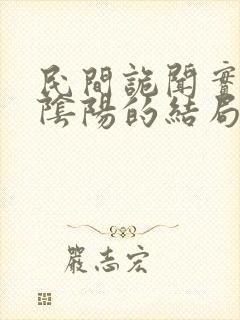 民間詭聞實
陰陽的結局
嚴志宏